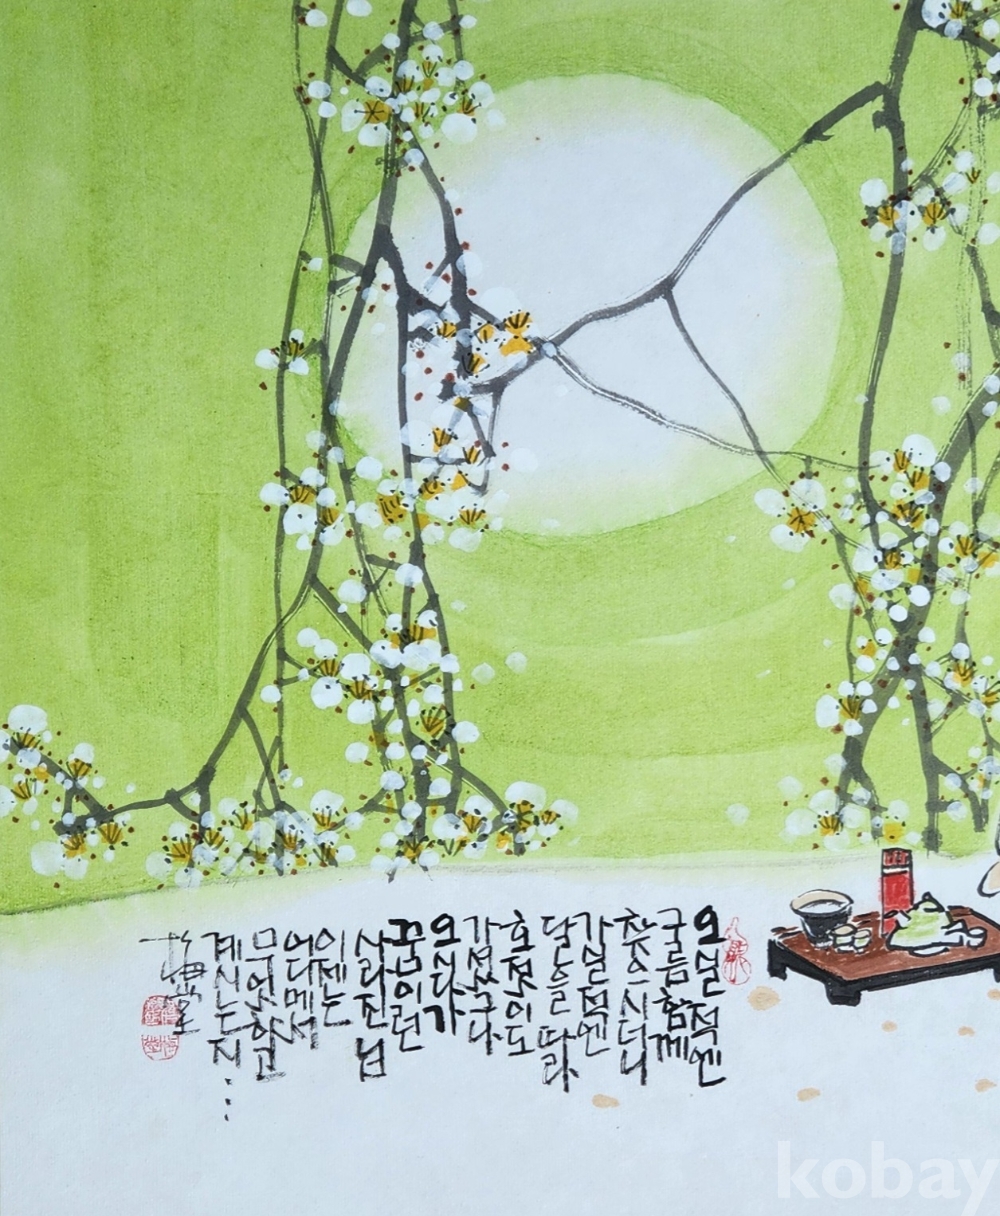 오실 적엔
구름 함께
찾으시더니
가실 적엔
달을 따라
호젓이도
가셨구나
오시다가
꿈이런
사라진 님
이제는
어디메서
무엇하고
계시는지...
kobay